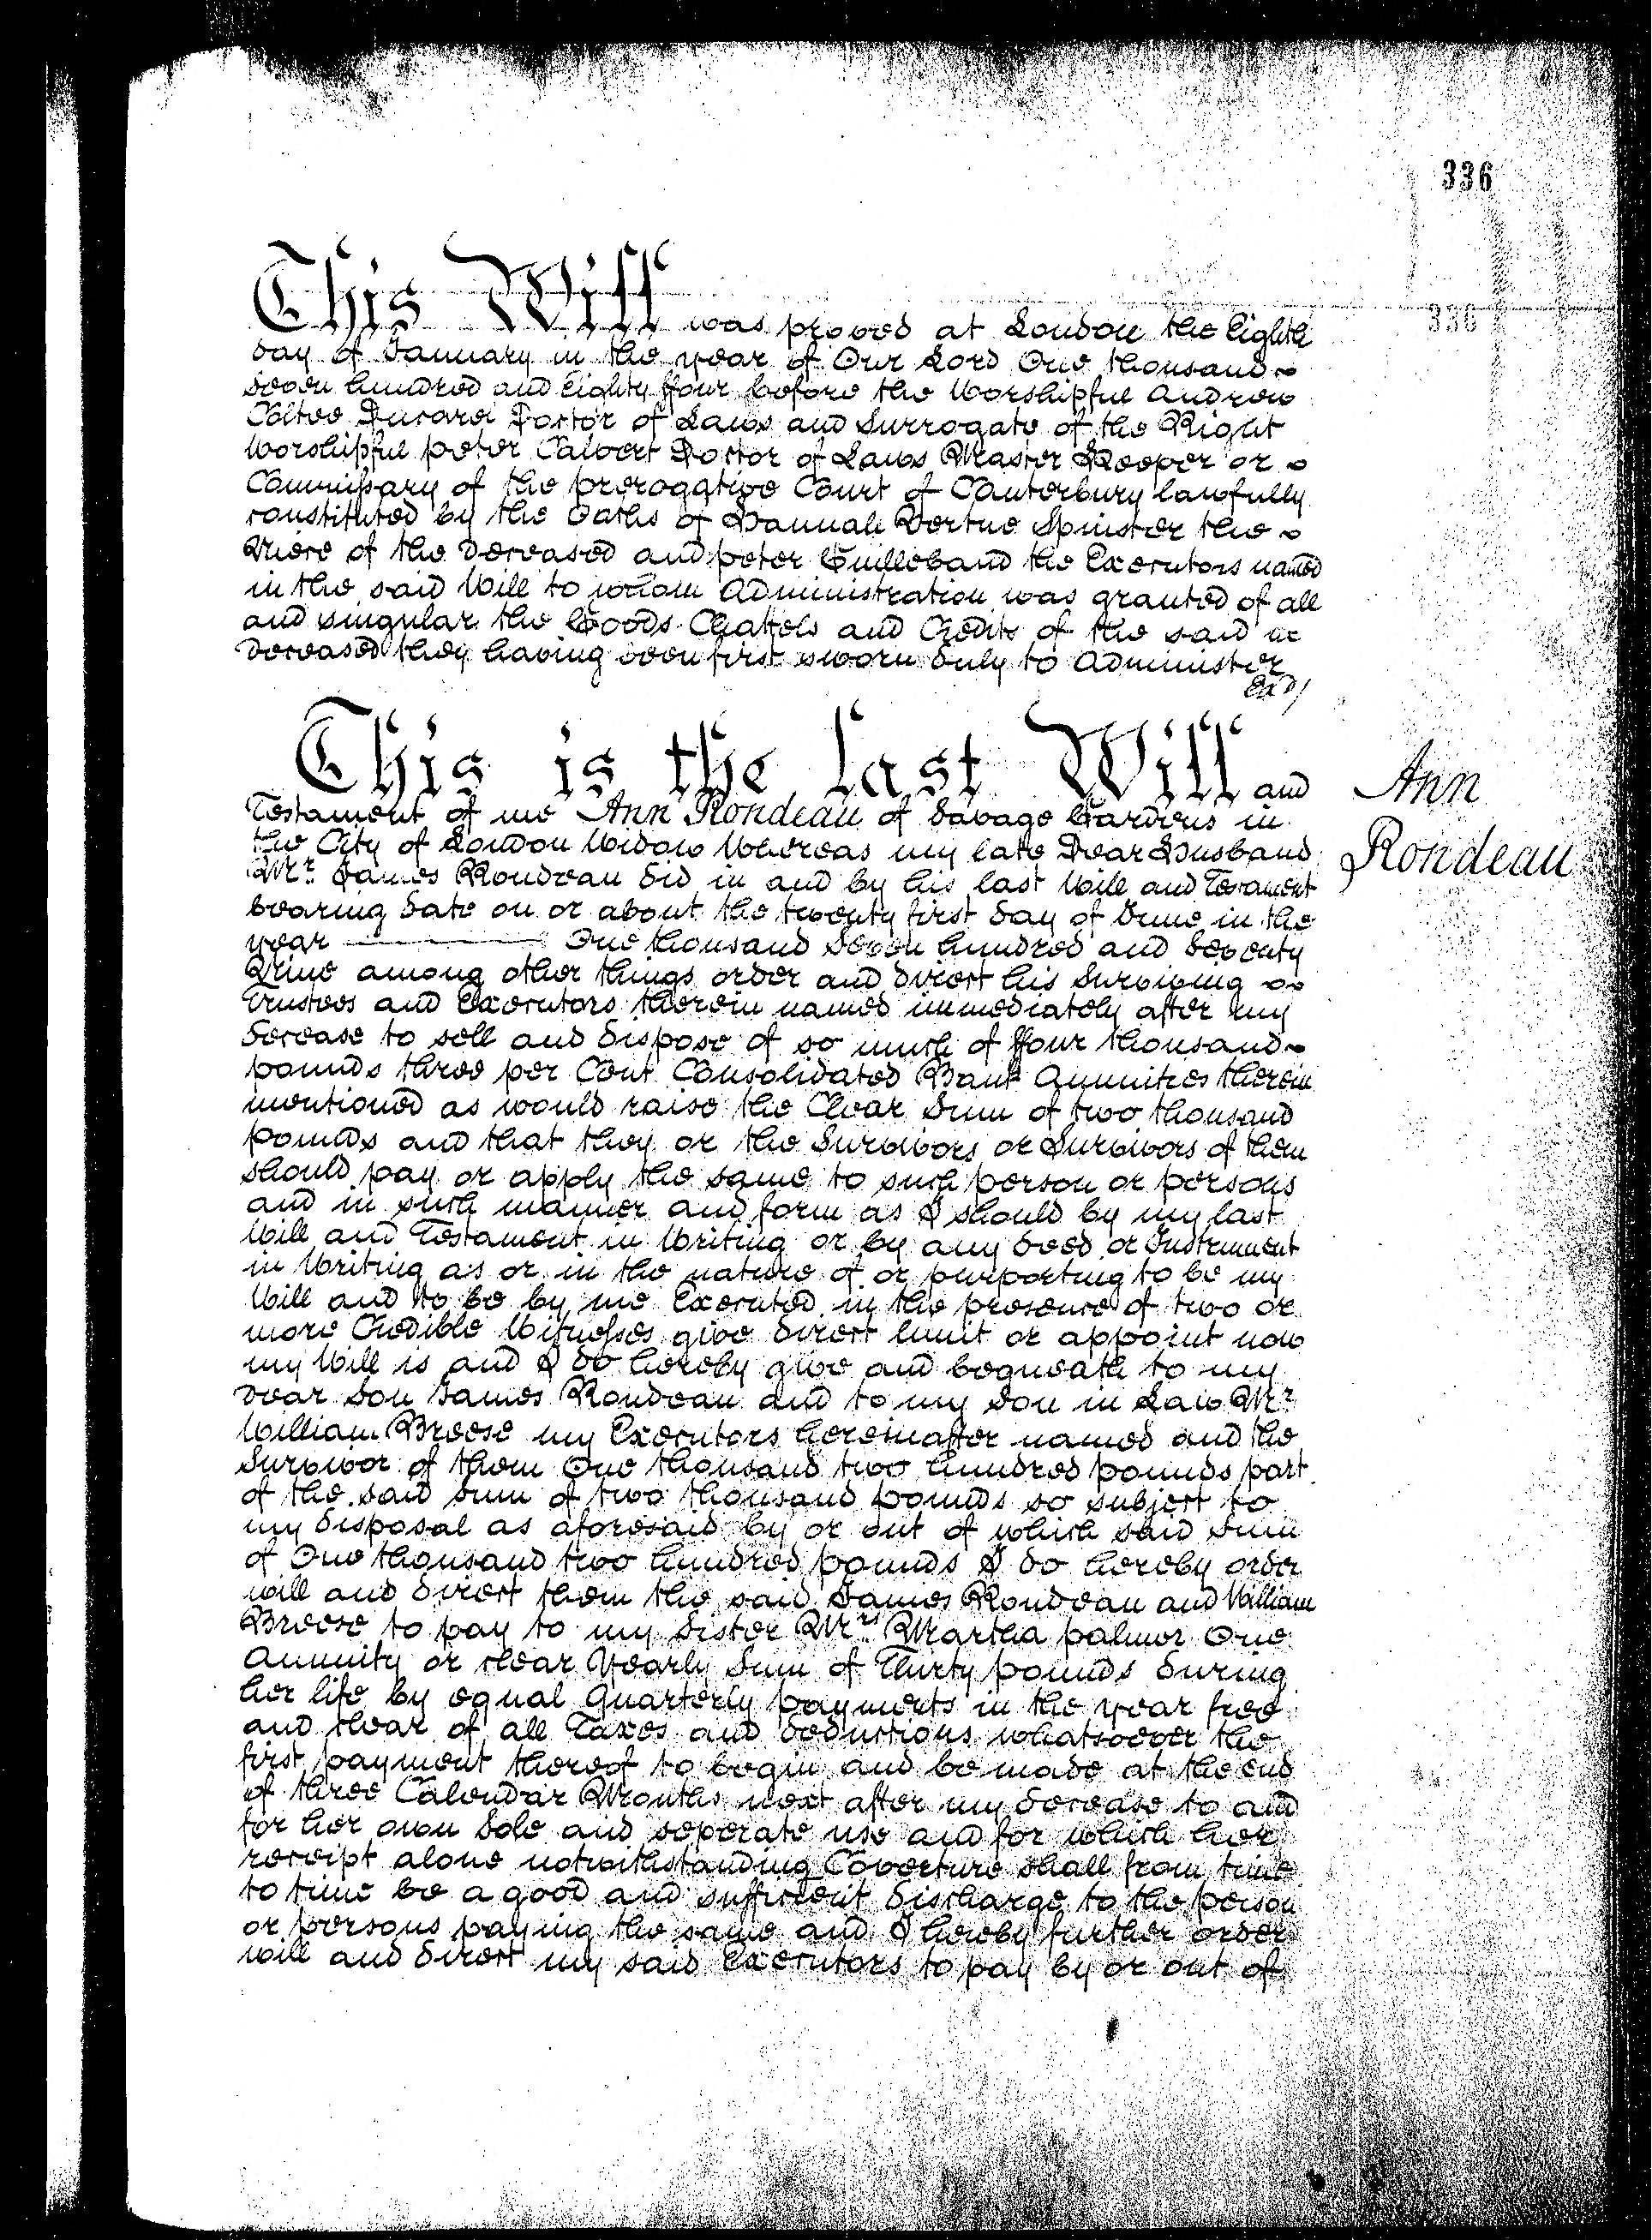 336
336
This Will was proved at London the Eighth
day of January in the year of Our Lord One thousand
seven hundred and Eighty ffour before the Worshipful Andrew
Coltee Ducarel Doctor of Laws and Surrogate of the Right
Worshipful peter Calvert Doctor of Laws Master Keeper or
Commissary of the prerogative Court of Canterbury lawfully
constituted by the Oaths of Hannah Vertue Spinster the
Niece of the deceased and peter Guillebaud the Executors named
in the said Will to whom Administration was granted of all
and singular the Goods Chattels and Credits of the said
deceased they having been first sworn duly to Administer
Exd/
This is the last Will and
Testament of me Ann Rondeau of Savage Gardens in
the City of London Widow Whereas my late Dear Husband
Mr. James Rondeau did in and by his last Will and Testament
bearing date on or about the twenty first day of June in the
year One thousand seven hundred and Seventy
Nine among other things order and direct his Surviving
Trustees and Executors therein named immediately after my
decease to sell and dispose of so much of ffour thousand
pounds three per Cent Consolidated Bank Annuities therein
mentioned as would raise the Clear Sum of two thousand
pounds and that they or the Survivors or Survivors of them
should pay or apply the same to such person or persons
and in such manner and form as I should by my last
Will and Testament in Writing or by any deed or Instrument
in Writing as or in the nature of or purporting to be my
Will and to be by me Executed in the presence of two or
more Credible Witnesses give direct limit or appoint now
my Will is and I do hereby give and bequeath to my
dear Son James Rondeau and to my Son in Law Mr.
William Breese my Executors hereinafter named and the
Survivor of them One thousand two hundred pounds part
of the said sum of two thousand pounds so subject to
my disposal as aforesaid by or out of which said Sum
of One thousand two hundred pounds I do hereby order
will and direct them the said James Rondeau and William
Breese to pay to my Sister Mrs. Martha palmer One
Annuity or clear Yearly Sum of Thirty pounds during
her life by equal Quarterly payments in the year free
and clear of all Taxes and deductions whatsoever the
first payment thereof to begin and be made at the end
of three Calendar Months next after my decease to and
for her own Sole and seperate use and for which her
receipt alone notwithstanding Coverture shall from time
to time be a good and sufficient discharge to the person
or persons paying the same and I hereby further order
will and direct my said Executors to pay by or out of
Ann
Rondeau